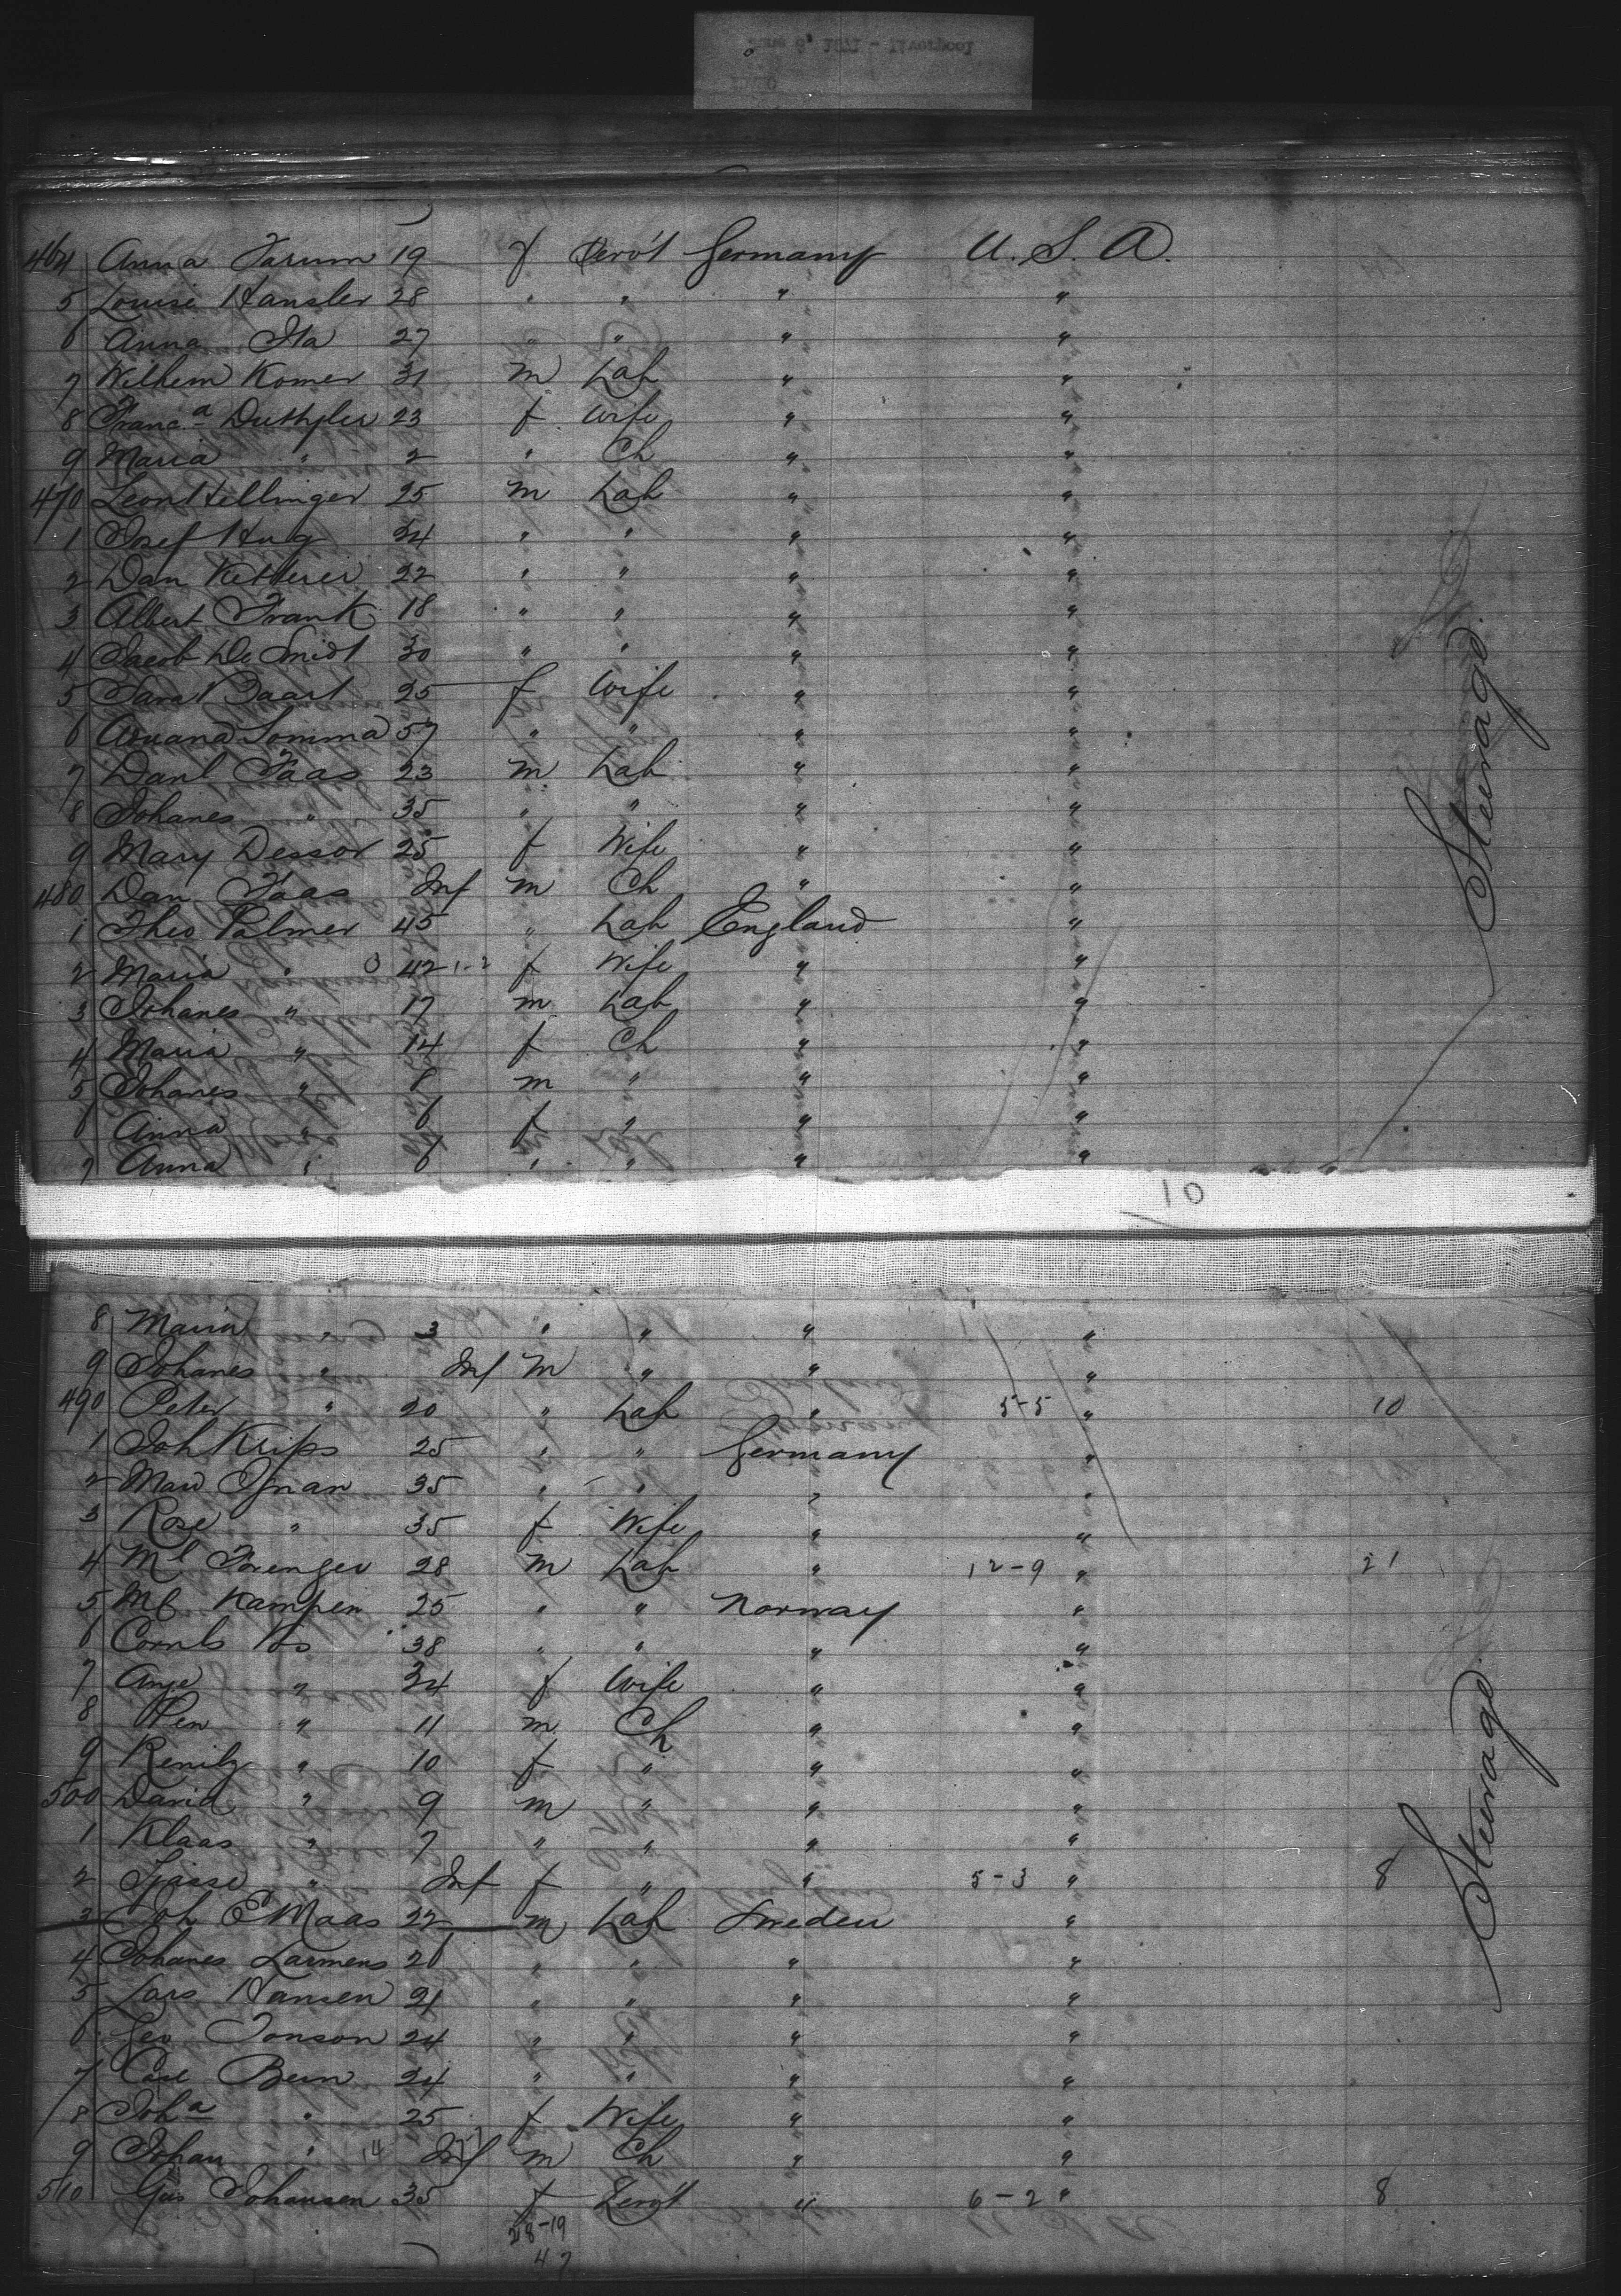 464 Anna Farum 19 f Serv't Germany U. S. A.
5 Louise Hansler 28 " " " "
6 Anna Ita 27 " " " "
7 Wilhem Komer 31 m Lab " "
8 Franca Duthyler 23 f Wife " "
9 Maria " 2 " Ch " "
470 Leon Hellinger 25 m Lab " "
1 Josef Hug 34 " " " "
2 Dan Ketterer 22 " " " "
3 Albert Frank 18 " " " "
4 Jacob De Smidt 30 " " " "
5 Sara Baart 25 f Wife " "
6 Somma 57 " " " "
7 Danl Faas 23 m Lab " "
8 Johanes " 35 " " " "
9 Mary Dessor 25 f Wife " "
480 Dan Faas Inf m Ch " "
1 Theo Palmer 45 " Lab England "
2 Maria " 42 1-2 f Wife " "
3 Johanes " 17 m Lab " "
4 Maria " 14 f Ch " "
5 Johanes " 8 m " " "
6 Anna " 6 f " " "
7 Anna " 6 " " " "
Steerage
10
8 Maria " 3 " " " "
9 Johanes " Inf m " " "
490 Peter " 20 " Lab " 5-5 " 10
1 Joh Krips 25 " " Germany "
2 Ignan 35 " " " "
3 Rose " 35 f Wife " "
4 Ml Frenger 28 m Lab " 12-9 " 21
5 Kampen 25 " " Norway "
6 Cornls Vos 38 " " " "
7 Anje " 34 f Wife " "
8 Hen " 11 m Ch " "
9 " 10 f " " "
500 David " 9 m " " "
1 Klaas " 7 " " " "
2 " Inf f " " 5-3 " 8
3 Joh E Maas 22 m Lab Sweden "
4 Johanes Larmens 26 " " " "
5 Lars Hansen 21 " " " "
6 Geo Jonson 24 " " " "
7 Carl Bern 24 " " " "
8 Joha " 25 f Wife " "
9 Johan " 14 Inf m Ch " "
510 Gus Johansen 35 f Serv't " 6-2 " 8
28-19
47
Steerage